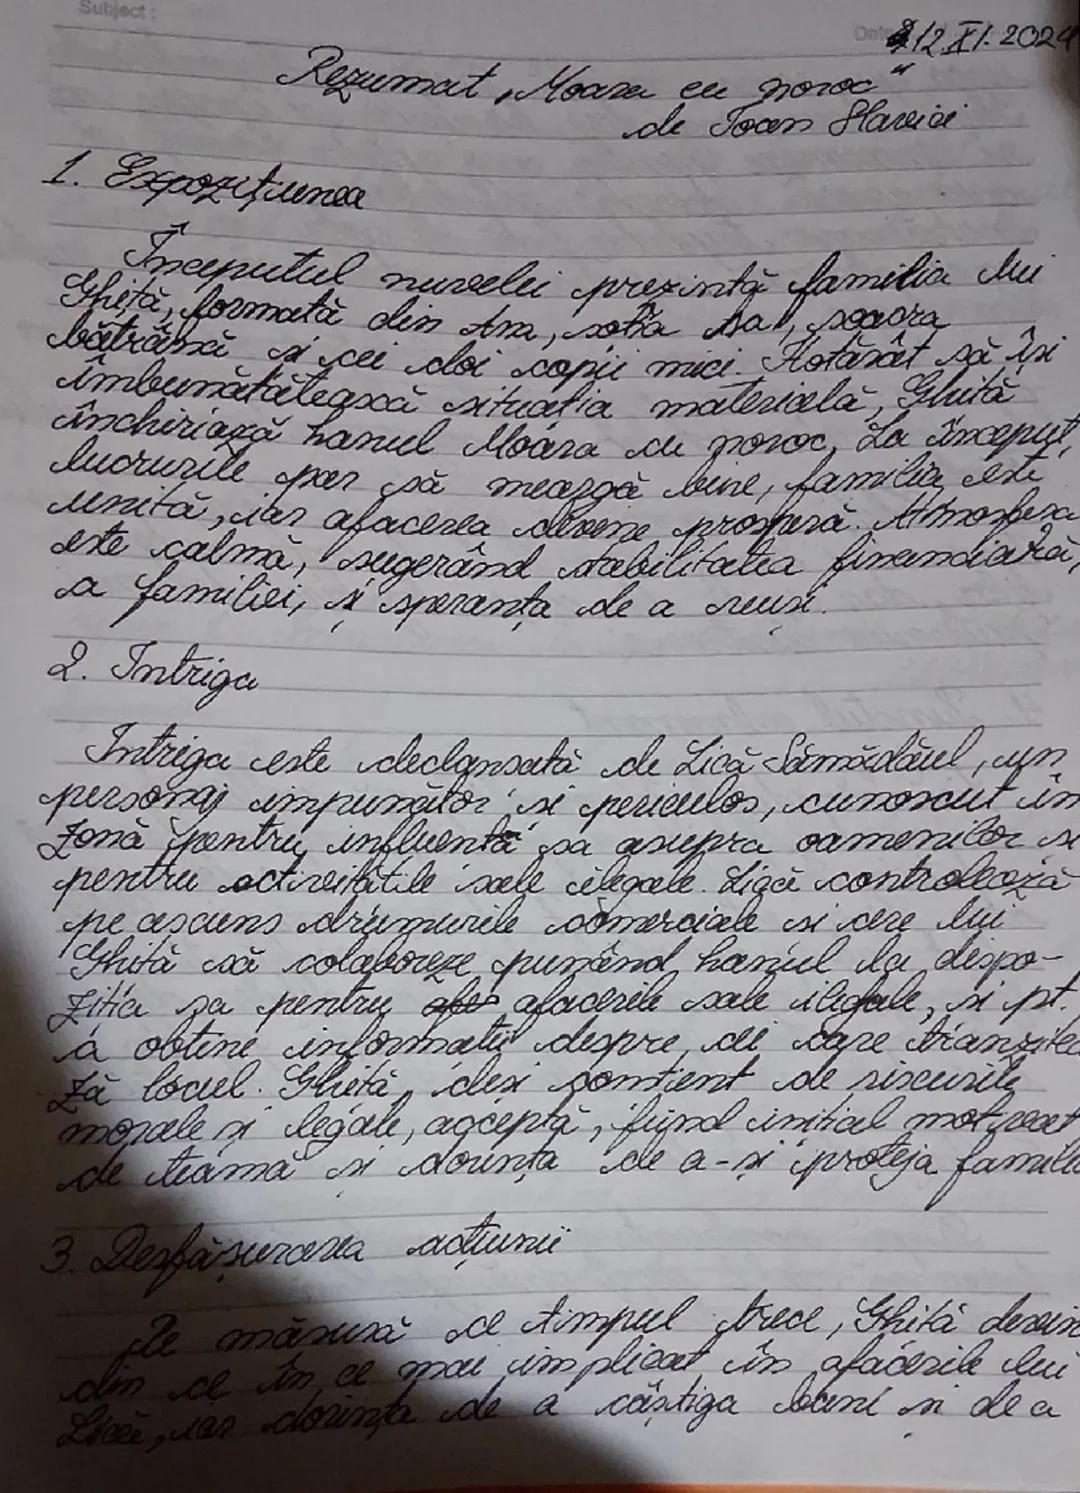 Subject:
Date 12.XI.2024
Rezumat „Moara cu noroc"
de Ioan Slavici
1. Expozițiunea
Începutul nuvelei prezintă familia lui
Ghiță, formată din Ana, soția sa, soacra
bătrână și cei doi copii mici. Hotărât să își
îmbunătățească situația materială, Ghiță
închiriază hanul Moara cu noroc. La început,
lucrurile par să meargă bine, familia este
unită, iar afacerea devine prosperă. Atmosfera
este calmă, sugerând stabilitatea financiară,
a familiei, și speranța de a reuși.
2. Intriga
Intriga este declanșată de Lică Sămădăul, un
personaj impunător și periculos, cunoscut în
zonă pentru influența sa asupra oamenilor și
pentru activitățile sale ilegale. Lică controlează
pe ascuns drumurile comerciale și cere lui
Ghiță să colaboreze punând hanul la dispo-
ziția sa pentru afacerile sale ilegale, și pt.
a obține informații despre cei care tranzitea-
ză locul. Ghiță, deși conștient de riscurile
morale și legale, acceptă, fiind inițial motivat
de teamă și dorința de a-și proteja famili
3. Desfășurarea acțiunii
Pe măsură ce timpul trece, Ghiță devin
din ce în ce mai implicat în afacerile lui
Lică, iar dorința de a câștiga bani și de a